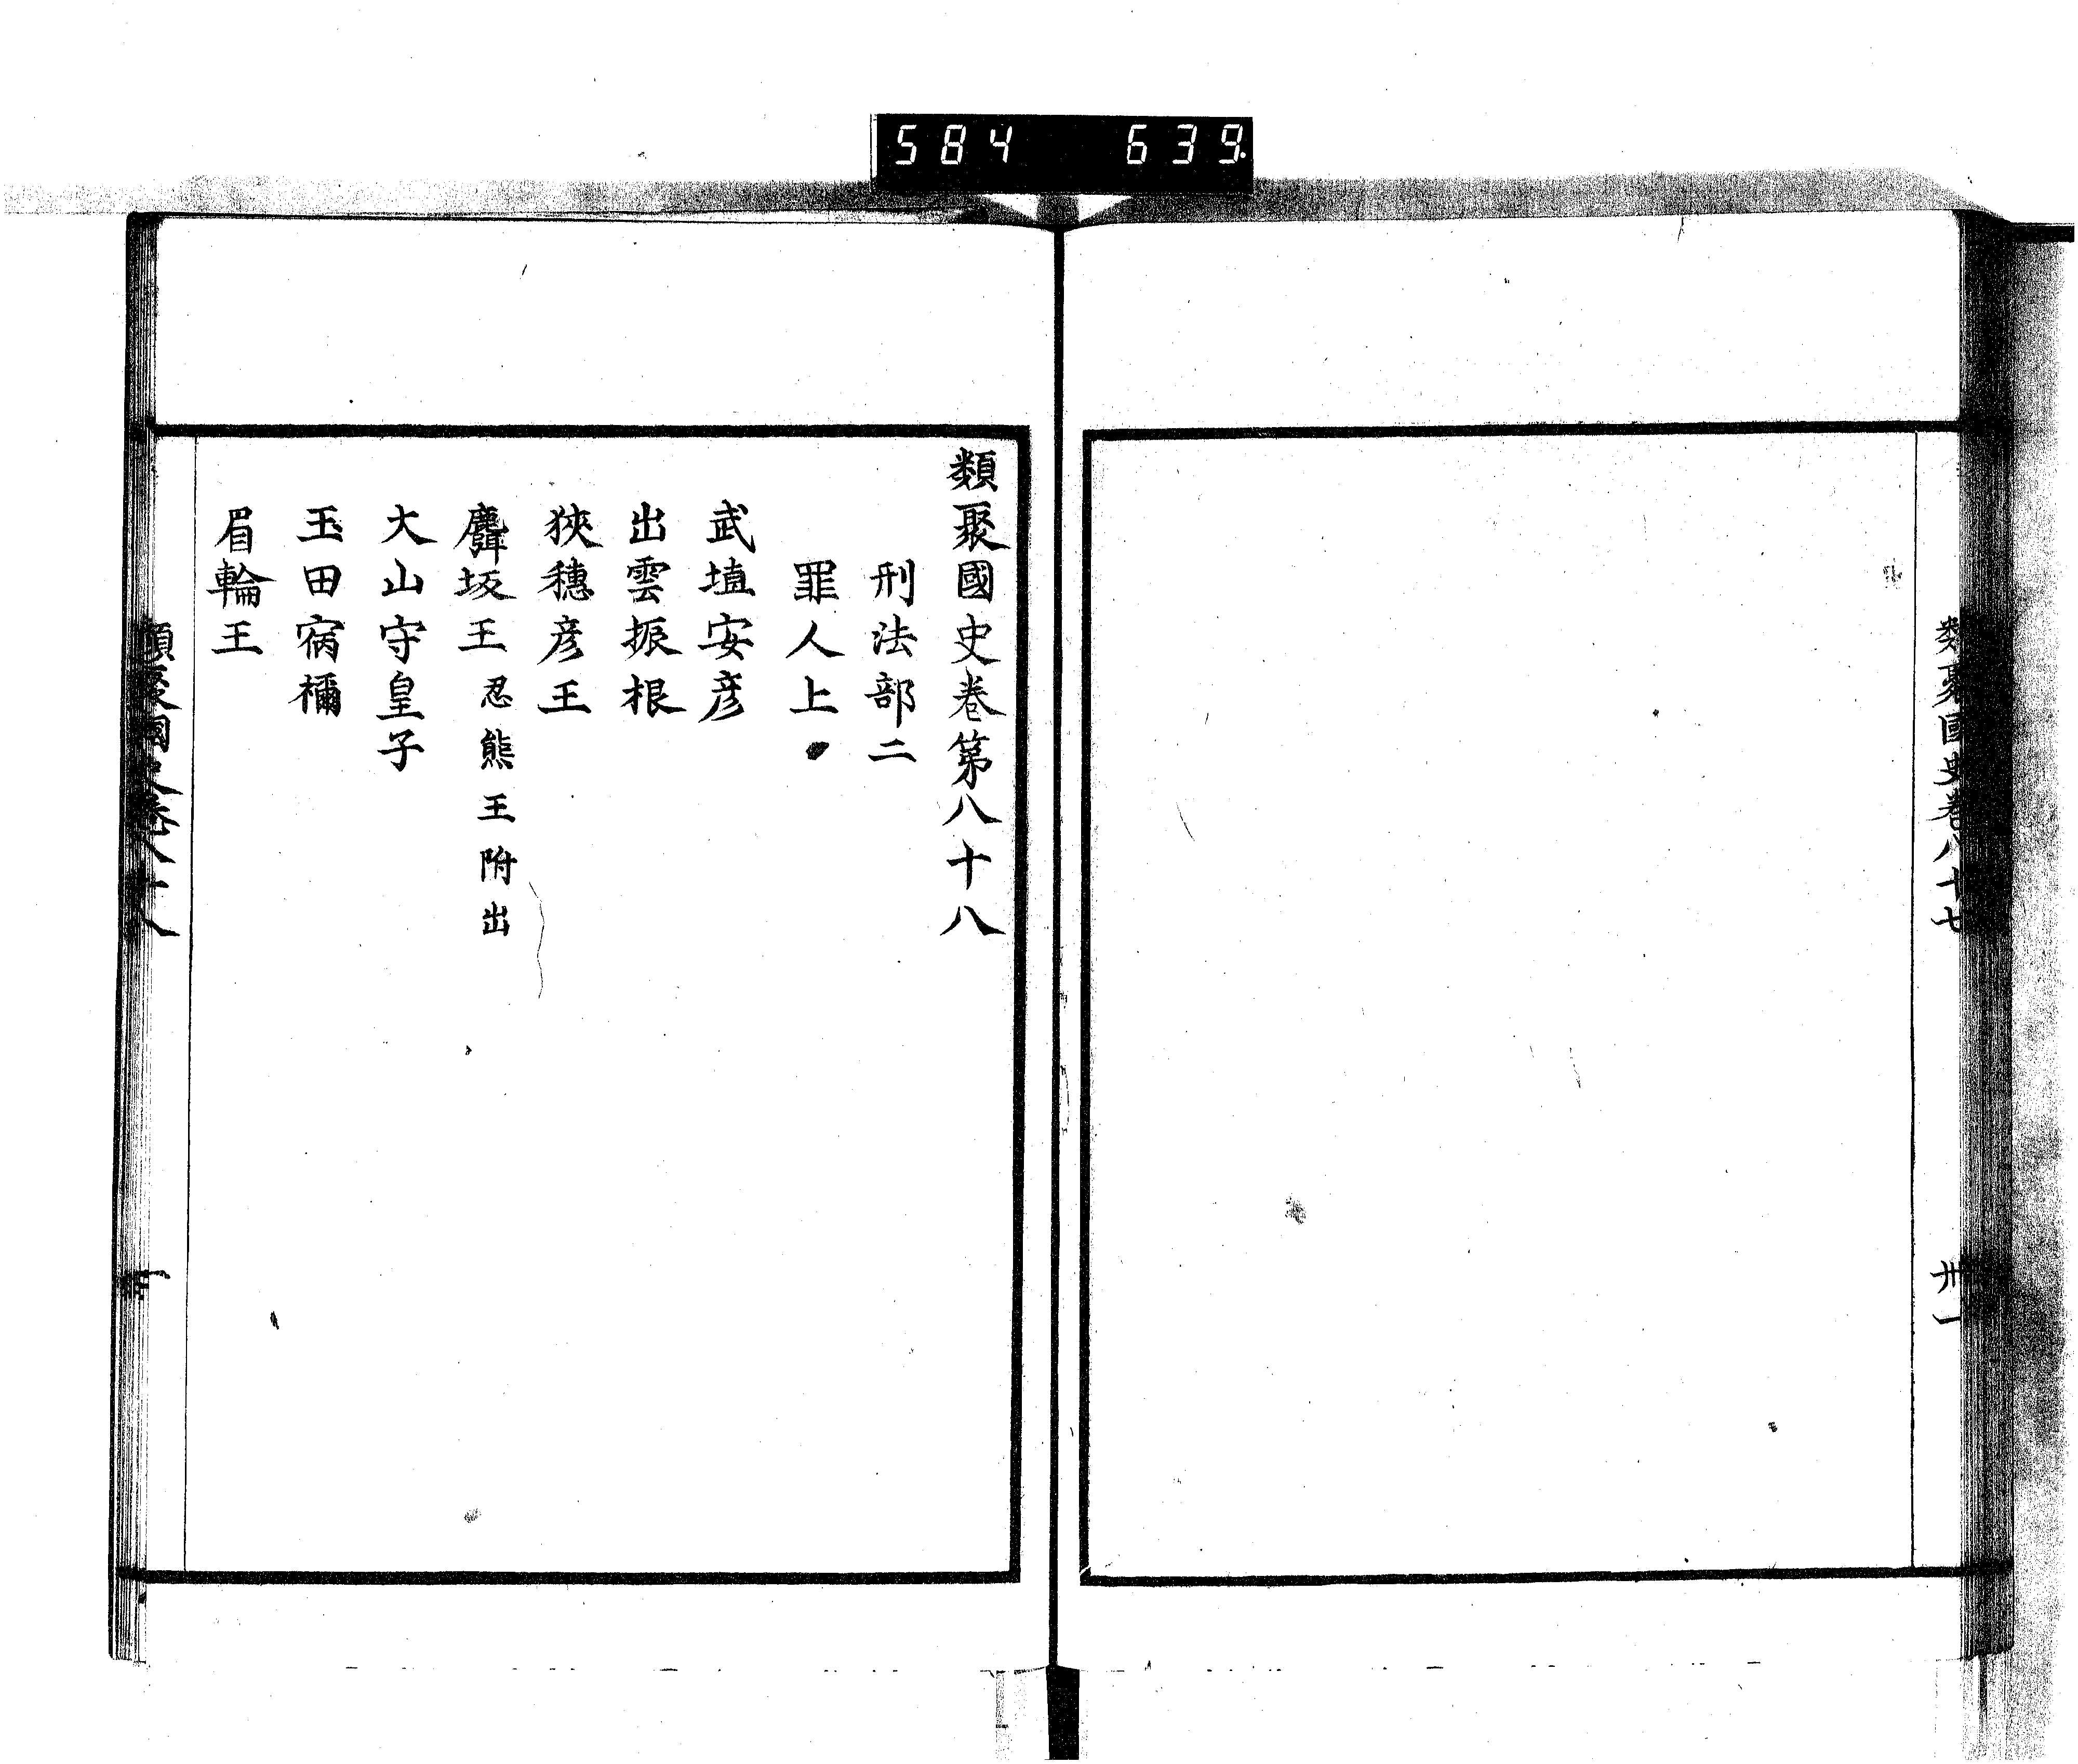 584 639
類聚國史卷八十七
卅一
類聚國史卷第八十八
刑法部二
罪人上
武埴安彦
出雲振根
狹穗彦王
麛坂王 忍熊王附出
大山守皇子
玉田宿禰
眉輪王
類聚國史卷八十八